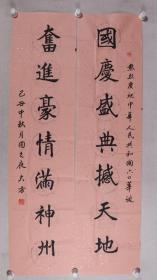 熱烈慶祝中華人民共和國六〇華誕
國慶盛典撼天地
奮進豪情滿神州
己丑中秋月圓之夜